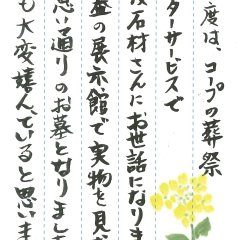 度は、コープの葬祭
ターサービスで
石材さんにお世話になりま
の展示館で実物を見
思い通りのお墓となりまし
も大変嬉んでいると思いま